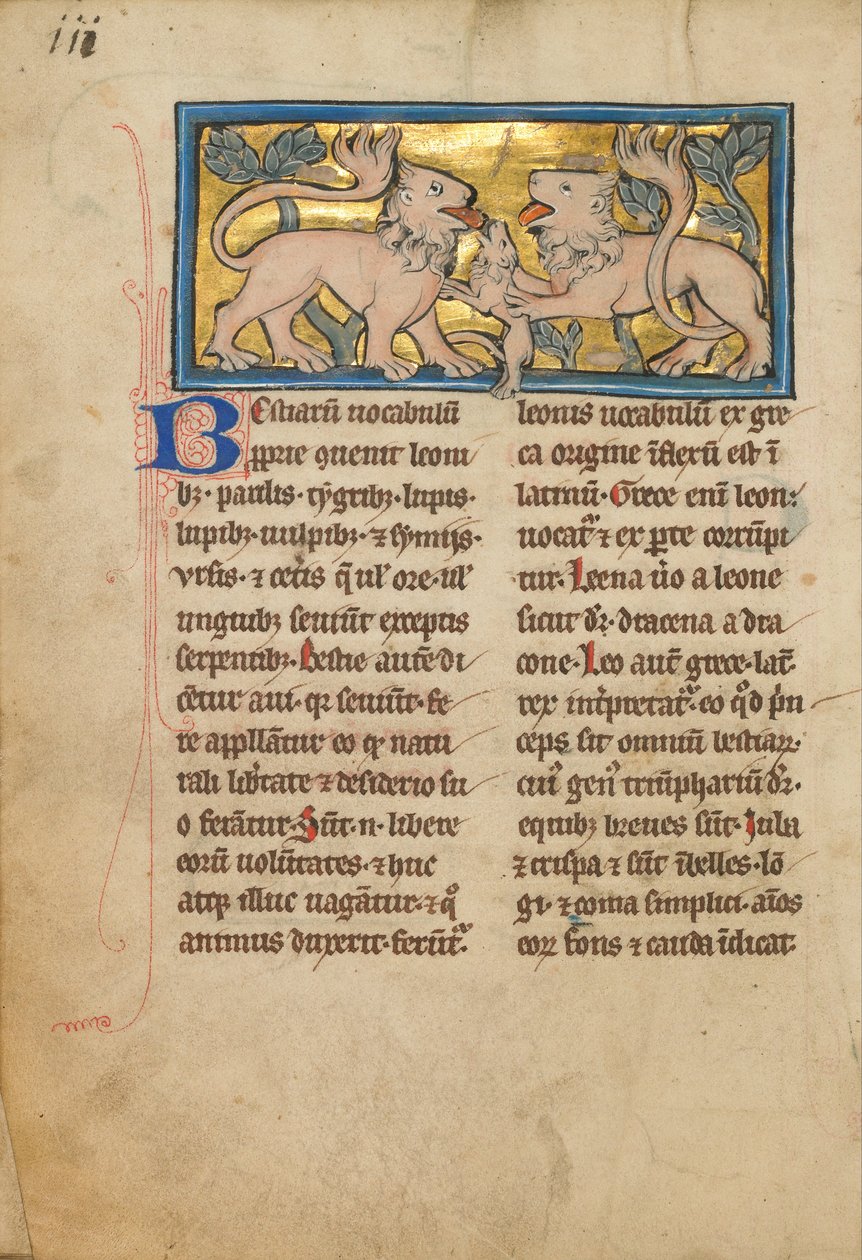 iii
Bestiarū uocabulū
ꝓprie ꝯuenit leoni
bꝫ· pardis· tygribꝫ· lupis·
lupibꝫ· uulpibꝫ· ⁊ symijs·
vrsis· ⁊ cetis q̄ ul' ore· ul'
unguibꝫ seuiūt exceptis
serpentibꝫ· Bestie autē di
cūtur a ui· qꝛ seuiūt· fe
re appllāntur eo ꝙ natu
rali lib̄tate ⁊ desiderio su
o ferātur· Sūt· n· libere
eorū uolūtates· ⁊ huc
atqꝫ illuc uagātur· ⁊ qͦ
animus duxerit· ferūtᷣ.
leonis uocabulū ex gre
ca origine īflexū est ī
latinū· Grece enī leon:
uocatᷣ ⁊ ex ꝑte corrūpi
tur· Leena ūo a leone
sicut dꝛ̄· dracena a dra
cone· Leo aut̄ grece· lat̄·
rex int̓pretatᷣ· eo qͦd p̓n
ceps sit omniū bestiaꝝ·
cui᷒ gen᷒ triūphariū dꝛ̄·
e quibꝫ breues sūt· Iuba
⁊ crispa ⁊ sūt ībelles· lō
gi· ⁊ coma simplici· aīos
eoꝝ frons ⁊ cauda īdicat·